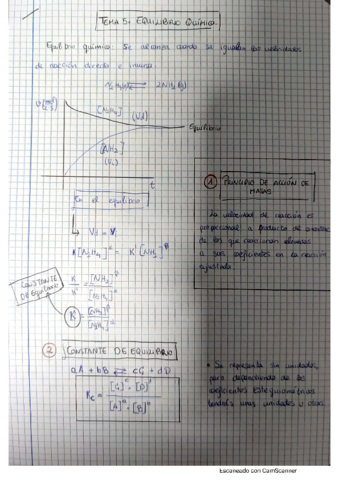 TEMA 5: EQUILIBRIO QUÍMICO
Equilibrio químico: Se alcanza cuando se igualan las velocidades
de reacción directa e inversa
N₂H₄(g) ⇌ 2NH₂(g)
[N₂H₄] (Vd)
Equilibrio
[NH₂]
(Vi)
t
En el equilibrio
Vd = Vi
K[N₂H₄]ᵅ = K'[NH₂]ᵝ
K/K' = [NH₂]ᵝ/[N₂H₄]ᵅ
CONSTANTE
DE EQUILIBRIO
K = [NH₂]ᵝ/[N₂H₄]ᵅ
1 PRINCIPIO DE ACCIÓN DE
MASAS
La velocidad de reacción es
proporcional a producto de
de los que reaccionan elevadas
a sus coeficientes en la reacción
ajustada
2 CONSTANTE DE EQUILIBRIO
aA + bB ⇌ cC + dD
Kc = [C]ᶜ · [D]ᵈ / [A]ᵃ · [B]ᵇ
• Se representa sin unidades,
pero dependiendo de los
coeficientes estequiométricos
tendrá unas unidades u otras
Escaneado con CamScanner